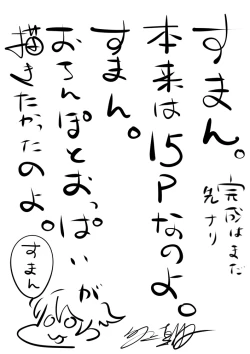 すまん。
本来は15Pなのよ。
すまん。
おちんぽとおっぱいが
描きたかったのよ。
完成はまだ
先ナリ
すまん